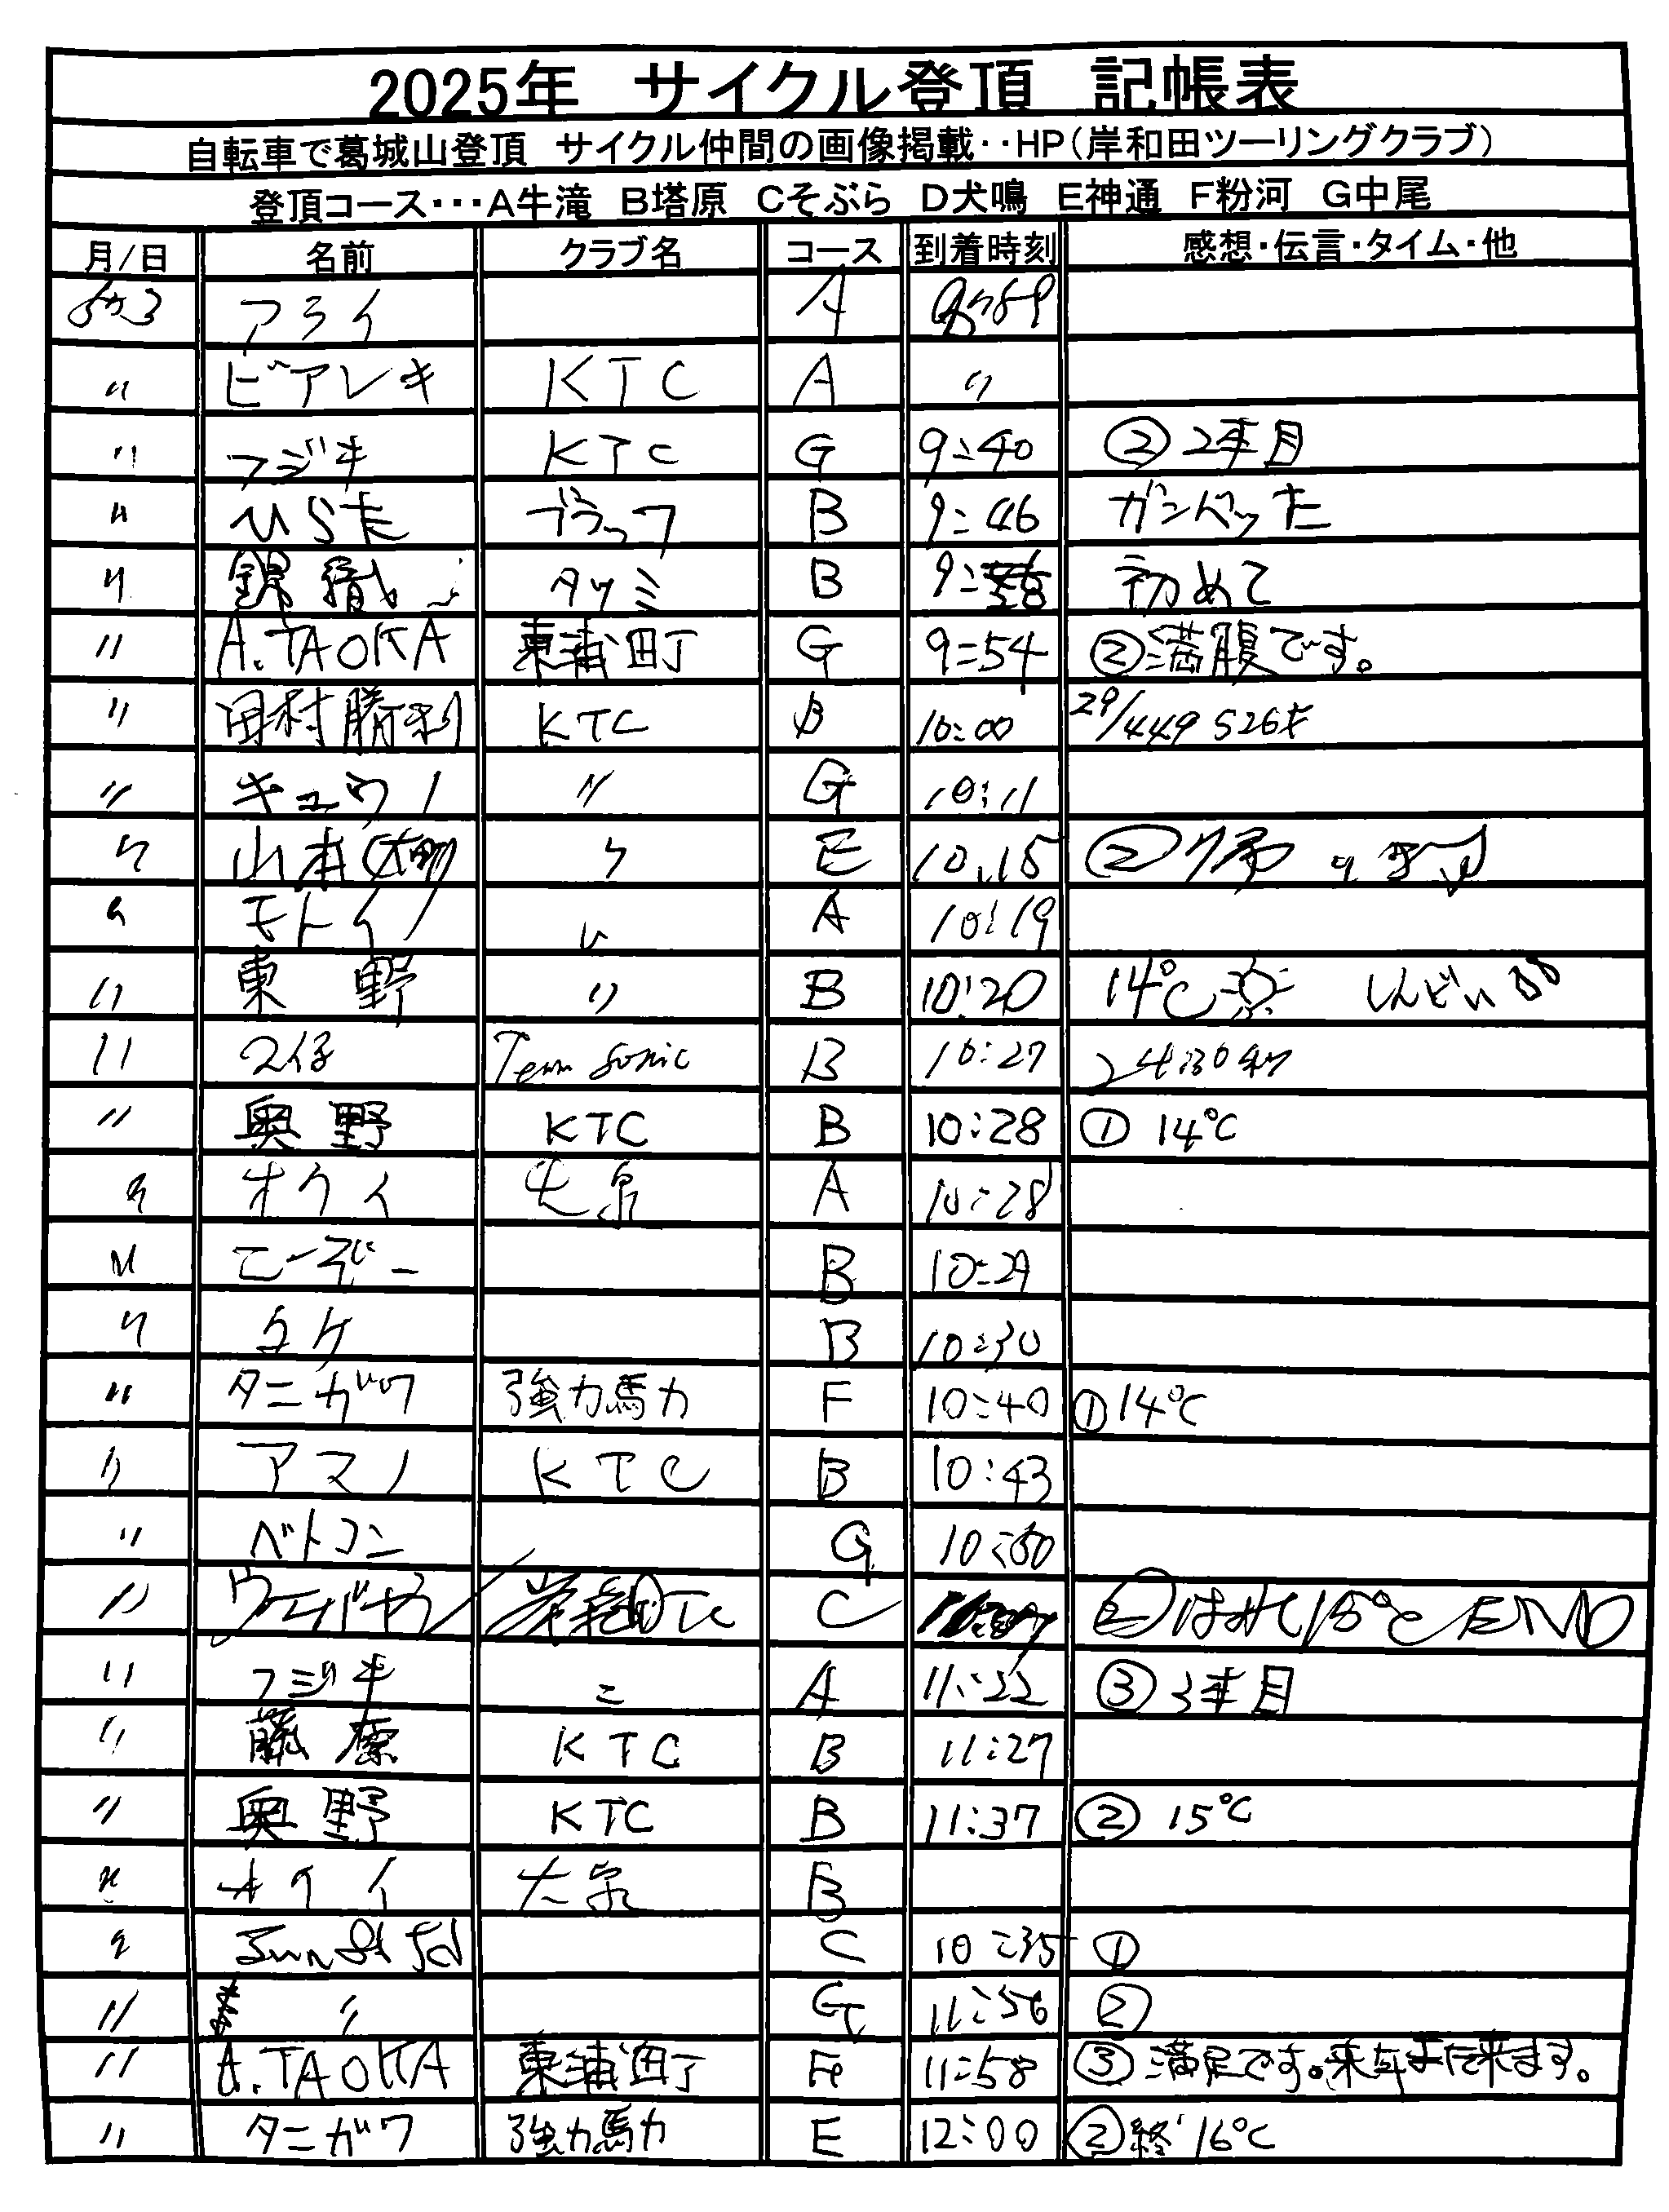 2025年 サイクル登頂 記帳表
自転車で葛城山登頂 サイクル仲間の画像掲載‥HP(岸和田ツーリングクラブ)
登頂コース･･･A牛滝 B塔原 Cそぶら D犬鳴 E神通 F粉河 G中尾
月/日 名前 クラブ名 コース 到着時刻 感想・伝言・タイム・他
アライ A
〃 ビアレキ KTC A 〃
〃 フジキ KTC G 9:40 ② 2本目
〃 ブラッフ B 9:46
〃 錦織 タツミ B 初めて
〃 A.TAOKA 東浦田丁 G 9:54 ②満腹です。
〃 田村勝利 KTC B 10:00 29/449 526才
〃 キュウノ 〃 G 10:11
〃 山本 〃 E 10.15 ②
〃 モトイ 〃 A 10:19
〃 東野 〃 B 10:20 14℃ しんどい
〃 Team Sonic B 10:27
〃 奥野 KTC B 10:28 ① 14℃
〃 オクイ A 10:28
〃 B 10:29
〃 タケ B 10:30
〃 タニガワ 強力馬力 F 10:40 ①14℃
〃 アマノ KTC B 10:43
〃 ベトコン G 10:50
〃 C ②はれ15℃ END
〃 フジキ 〃 A 11:22 ③ 3本目
〃 藤原 KTC B 11:27
〃 奥野 KTC B 11:37 ② 15℃
〃 オクイ B
〃 C 10:35 ①
〃 〃 G 11:56 ②
〃 A.TAOKA 東浦田丁 11:58 ③満足です。来年また来ます。
〃 タニガワ 強力馬力 E 12:00 ②終 16℃